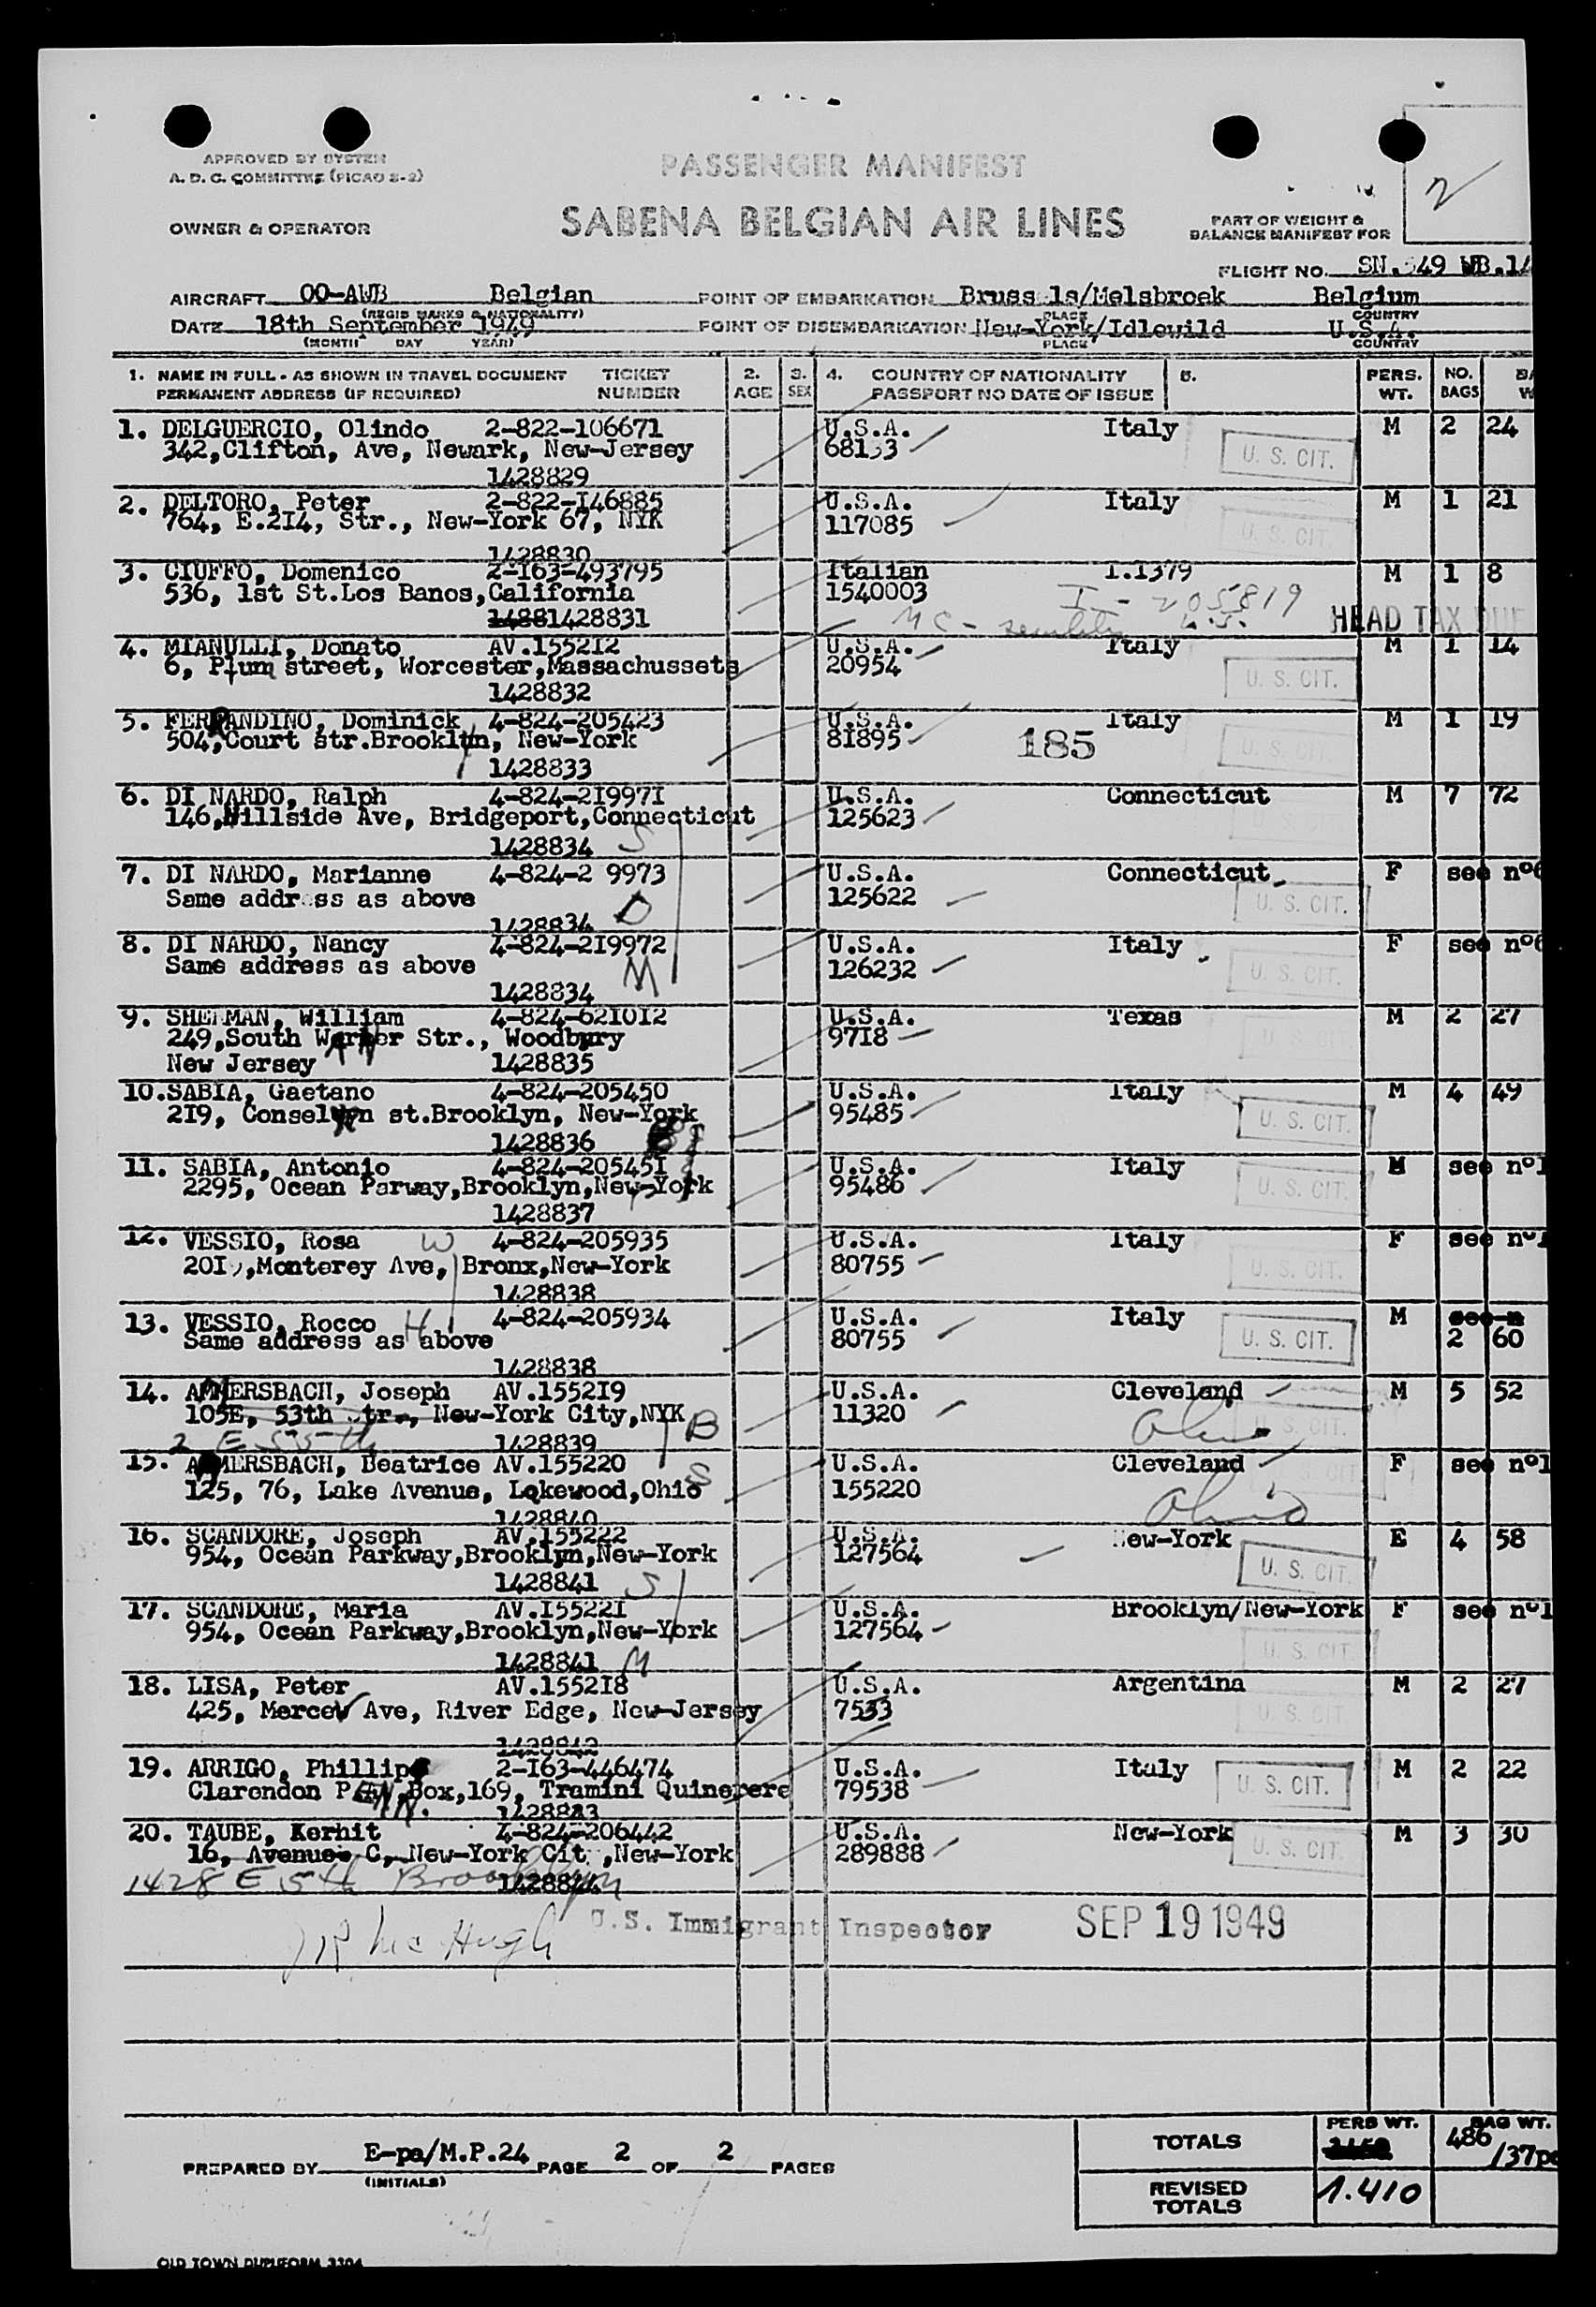 APPROVED BY SYSTEM
A. D. C. COMMITTEE (PICAO S-2)
PASSENGER MANIFEST
2
OWNER & OPERATOR
SABENA BELGIAN AIR LINES
PART OF WEIGHT &
BALANCE MANIFEST FOR
FLIGHT NO. SN. 549 WB.14
AIRCRAFT OO-AWB Belgian POINT OF EMBARKATION Bruss ls/Melsbroek Belgium
(REGIS MARKS & NATIONALITY) PLACE COUNTRY
DATE 18th September 1949 POINT OF DISEMBARKATION New-York/Idlewild U.S.A.
(MONTH DAY YEAR) PLACE COUNTRY
1. NAME IN FULL - AS SHOWN IN TRAVEL DOCUMENT TICKET 2. 3. 4. COUNTRY OF NATIONALITY 5. PERS. NO. BA
PERMANENT ADDRESS (IF REQUIRED) NUMBER AGE SEX PASSPORT NO DATE OF ISSUE WT. BAGS W
1. DELGUERCIO, Olindo 2-822-106671 U.S.A. Italy M 2 24
342,Clifton, Ave, Newark, New-Jersey 681 3 U. S. CIT.
1428829
2. DELTORO, Peter 2-822-I46885 U.S.A. Italy M 1 21
764, E.2I4, Str., New-York 67, NYK 117085 U. S. CIT.
1428830
3. CIUFFO, Domenico 2-I63-493795 Italian I.I379 M 1 8
536, 1st St.Los Banos,California 1540003 I - 205819
14881428831 MC - HEAD TAX DUE
4. MIANULLI, Donato AV.1552I2 U.S.A. Italy M 1 14
6, Plum street, Worcester,Massachussets 20954 U. S. CIT.
1428832
5. FERRANDINO, Dominick 4-824-205423 U.S.A. Italy M 1 19
504,Court str.Brooklyn, New-York 81895 185 U. S. CIT.
1428833
6. DI NARDO, Ralph 4-824-2I997I U.S.A. Connecticut M 7 72
146,Hillside Ave, Bridgeport,Connecticut 125623 U. S. CIT.
1428834 S
7. DI NARDO, Marianne 4-824-2 9973 U.S.A. Connecticut F see nº6
Same addr ss as above 125622 U. S. CIT.
1428834 D
8. DI NARDO, Nancy 4-824-2I9972 U.S.A. Italy F see nº6
Same address as above 126232 U. S. CIT.
1428834 M
9. SHERMAN, William 4-824-62I0I2 U.S.A. Texas M 2 27
249,South Warner Str., Woodbury 97I8 U. S. CIT.
New Jersey 1428835
10.SABIA, Gaetano 4-824-205450 U.S.A. Italy M 4 49
2I9, Conselyen st.Brooklyn, New-York 95485 U. S. CIT.
1428836
11. SABIA, Antonio 4-824-20545I U.S.A. Italy M see nº1
2295, Ocean Parway,Brooklyn,New-York 95486 U. S. CIT.
1428837
12. VESSIO, Rosa W 4-824-205935 U.S.A. Italy F see nº1
20I ,Monterey Ave, Bronx,New-York 80755 U. S. CIT.
1428838
13. VESSIO, Rocco H 4-824-205934 U.S.A. Italy M see n
Same address as above 80755 U. S. CIT. 2 60
1428838
14. AMMERSBACH, Joseph AV.1552I9 U.S.A. Cleveland M 5 52
105E, 53th Str., New-York City,NYK B 11320 Ohio U. S. CIT.
2 E 55th 1428839
15. AMMERSBACH, Beatrice AV.155220 U.S.A. Cleveland F see nº1
125, 76, Lake Avenue, Lakewood,Ohio S 155220 Ohio U. S. CIT.
1428840
16. SCANDORE, Joseph AV.155222 U.S.A. New-York E 4 58
954, Ocean Parkway,Brooklyn,New-York 127564 U. S. CIT.
1428841 S
17. SCANDORE, Maria AV.I5522I U.S.A. Brooklyn/New-York F see nº1
954, Ocean Parkway,Brooklyn,New-York 127564 U. S. CIT.
1428841 M
18. LISA, Peter AV.1552I8 U.S.A. Argentina M 2 27
425, Mercer Ave, River Edge, New-Jersey 7533 U. S. CIT.
1428842
19. ARRIGO, Phillip 2-I63-446474 U.S.A. Italy M 2 22
Clarendon PENN.Box,169, Tramini Quinerere 79538 U. S. CIT.
1428843
20. TAUBE, Kerhit 4-824-206442 U.S.A. New-York M 3 30
16, Avenue C, New-York Cit ,New-York 289888 U. S. CIT.
1428 E 5th Brooklyn 1428844
J R McHugh U.S. Immigrant Inspector SEP 19 1949
PREPARED BY E-pa/M.P.24 PAGE 2 OF 2 PAGES
(INITIALS)
TOTALS PERS WT. BAG WT.
486 /37pc
REVISED TOTALS 1.410
OLD TOWN DUPLIFORM 3304